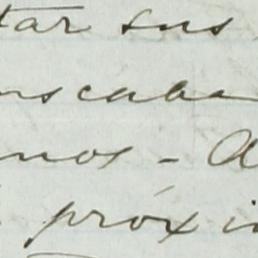 tar sus
uscaba
nos - A
próxi